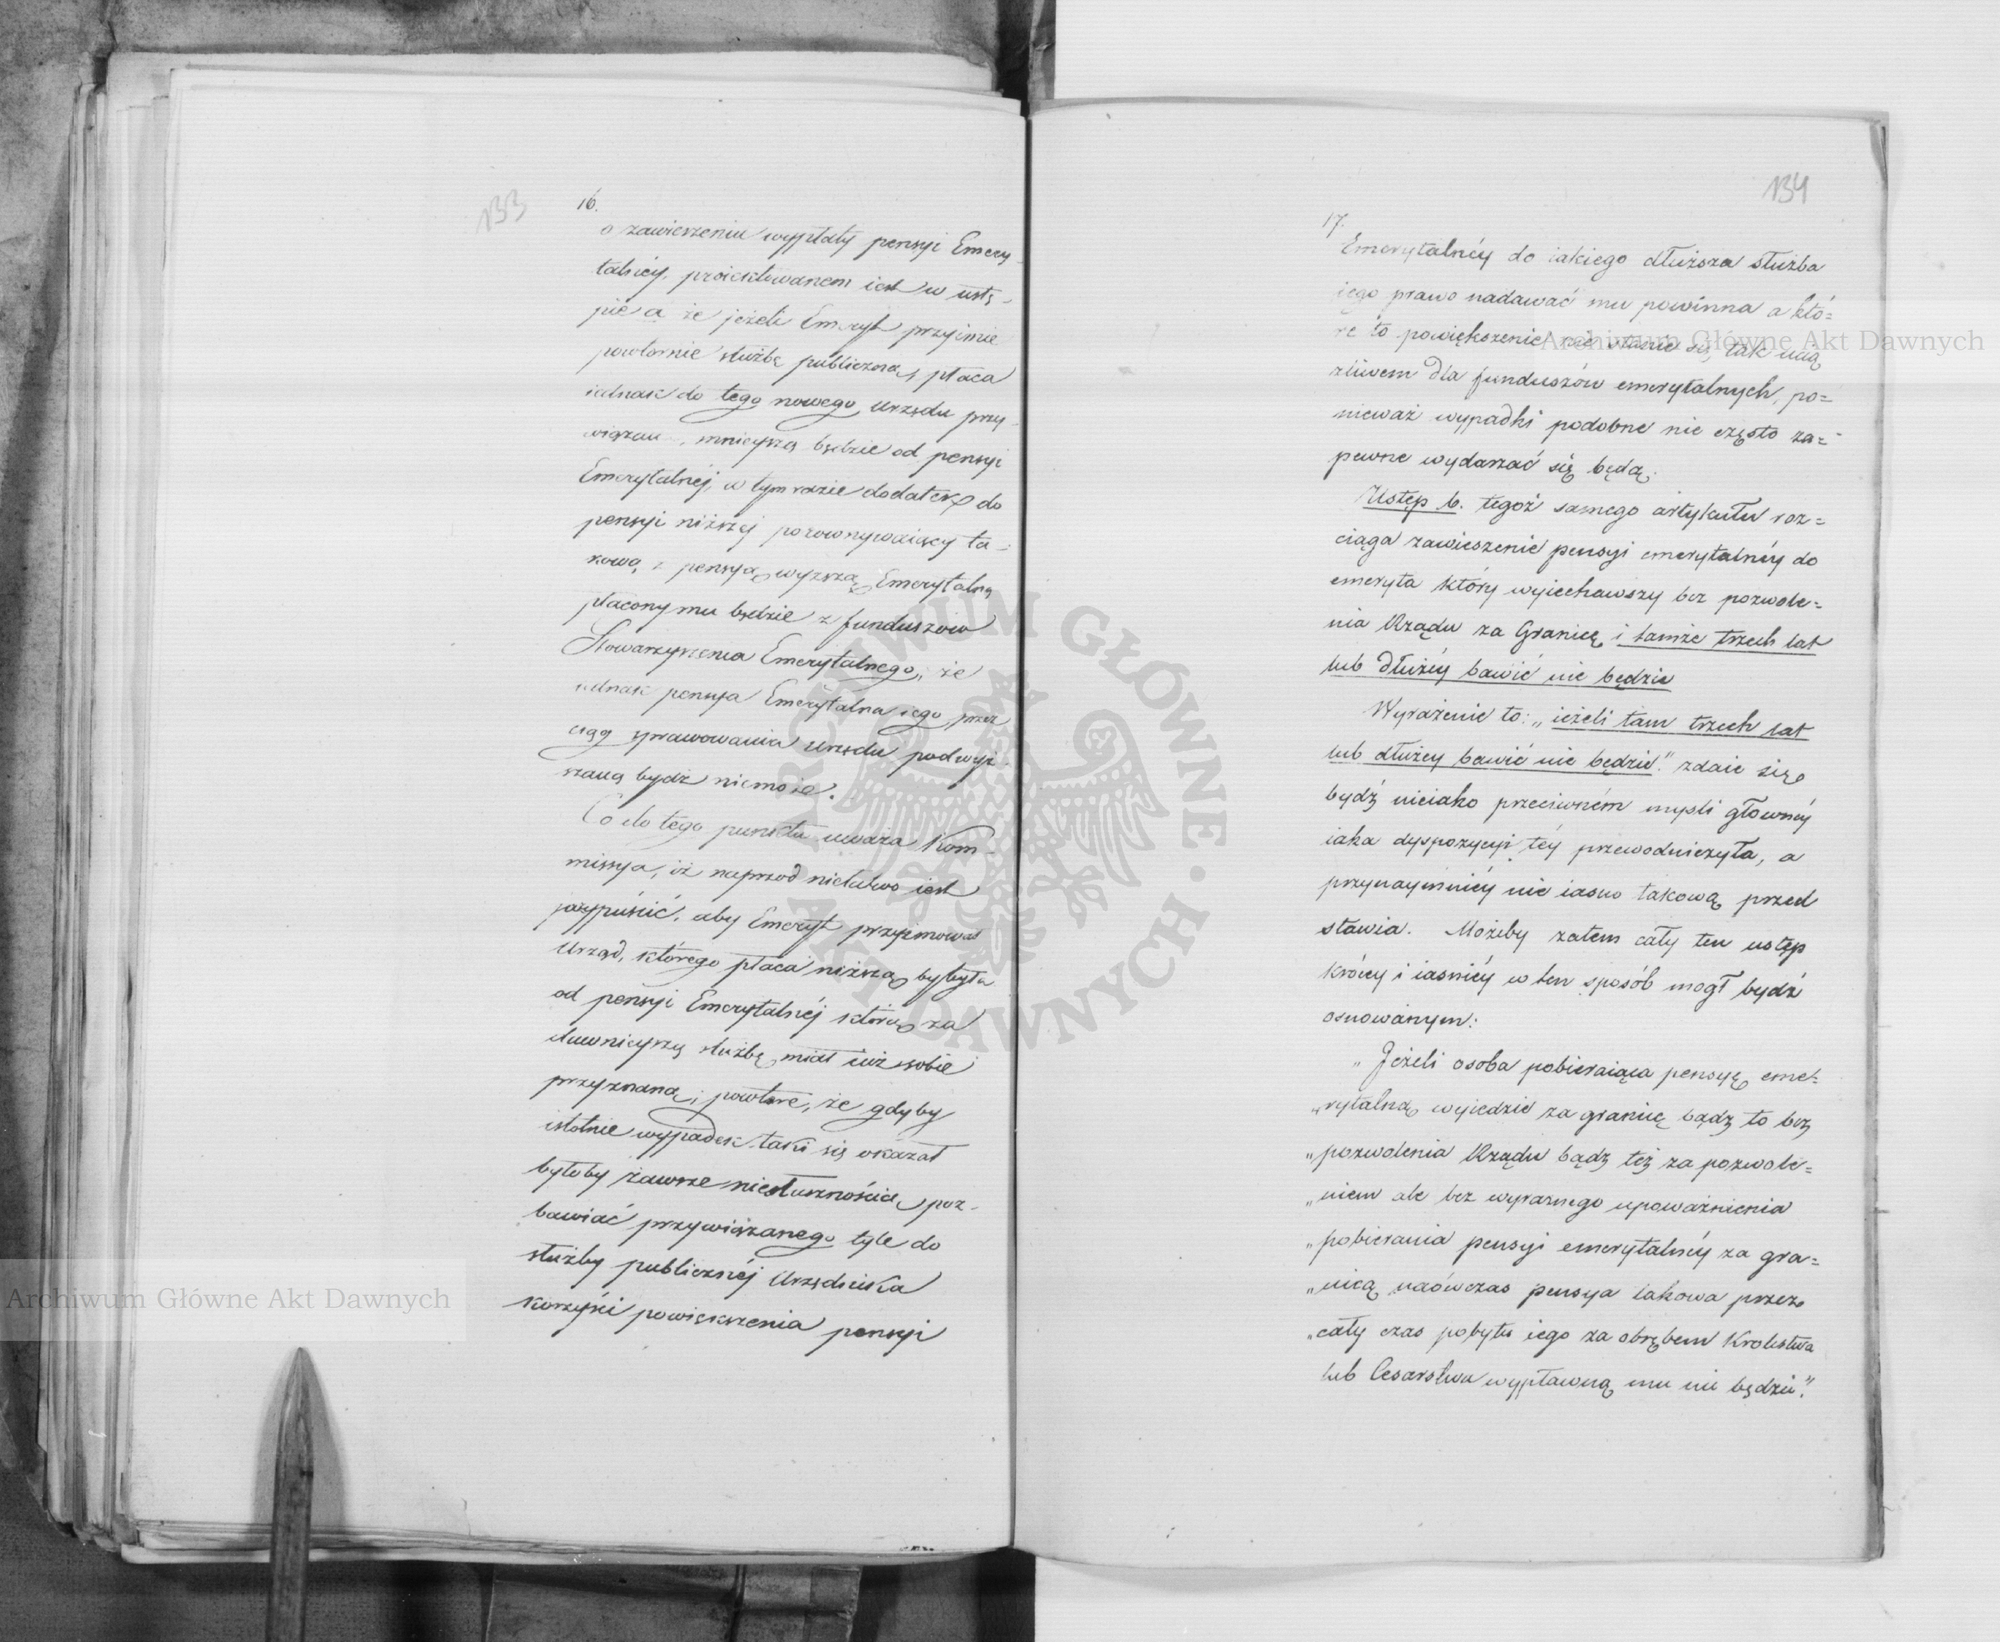 133
16.
o zawieszeniu wypłaty pensyi Emery-
talnéy, proiektowanem iest w ustę-
pie a że jeżeli Emeryt przyimie
powtornie służbę publiczną, płaca
iednak do tego nowego Urzędu przy-
wiązana, mnieyszą będzie od pensyi
Emerytalnéj, w tym razie dodatek do
pensyi niższej porównywaiący ta-
kową z pensyą wyższą Emerytalną
płacony mu będzie z funduszow
Stowarzyszenia Emerytalnego, że
iednak pensya Emerytalna iego przez
ciąg sprawowania Urzędu podwyż-
szaną bydź niemoże.
Co do tego punktu uważa Kom-
missya, iż naprzod niełatwo iest
przypuścić, aby Emeryt przyimował
Urząd, którego płaca niższą byłyby
od pensyi Emerytalnéj którą za
dawnieyszą służbę miał iuż sobie
przyznaną; powtore, że gdyby
istotnie wypadek taki się okazał
byłoby zawsze niesłusznością poz-
bawiać przywiązanego tyle do
służby publicznéj Urzędnika
korzyści powiększenia pensyi
134
17.
Emerytalnéy do iakiego dłuższa służba
iego prawo nadawać mu powinna a któ=
re to powiększenie nie stanie się tak ucią
żliwem dla funduszów emerytalnych, po=
nieważ wypadki podobne nie często za=
pewne wydarzać się będą.
Ustęp b. tegoż samego artykułu roz=
ciąga zawieszenie pensyi emerytalnéy do
emeryta który wyiechawszy bez pozwole=
nia Rządu za Granicę i tamże trzech lat
lub dłużéy bawić nie będzie
Wyrażenie to: „ieżeli tam trzech lat
lub dłużey bawić nie będzie." zdaie się
bydź nieiako przeciwném mysli głownéy
iaka dyspozycyi téy przewodniczyła, a
przynaymniéy nie iasno takową przed
stawia. Możeby zatem cały ten ustęp
krócéy i iaśniéy w ten sposób mogł bydź
osnowanym:
„Jeżeli osoba pobieraiąca pensyę eme=
„rytalną wyiedzie za granicę bądź to bez
„pozwolenia Rządu bądź też za pozwole=
„niem ale bez wyraznego upoważnienia
„pobierania pensyi emerytalnéy za gra=
„nicą naówczas pensya takowa przez
„cały czas pobytu iego za obrębem Krolestwa
lub Cesarstwa wypłacaną mu nie będzie."
Archiwum Główne Akt Dawnych
Archiwum Główne Akt Dawnych
ARCHIWUM GŁÓWNE • AKT DAWNYCH •